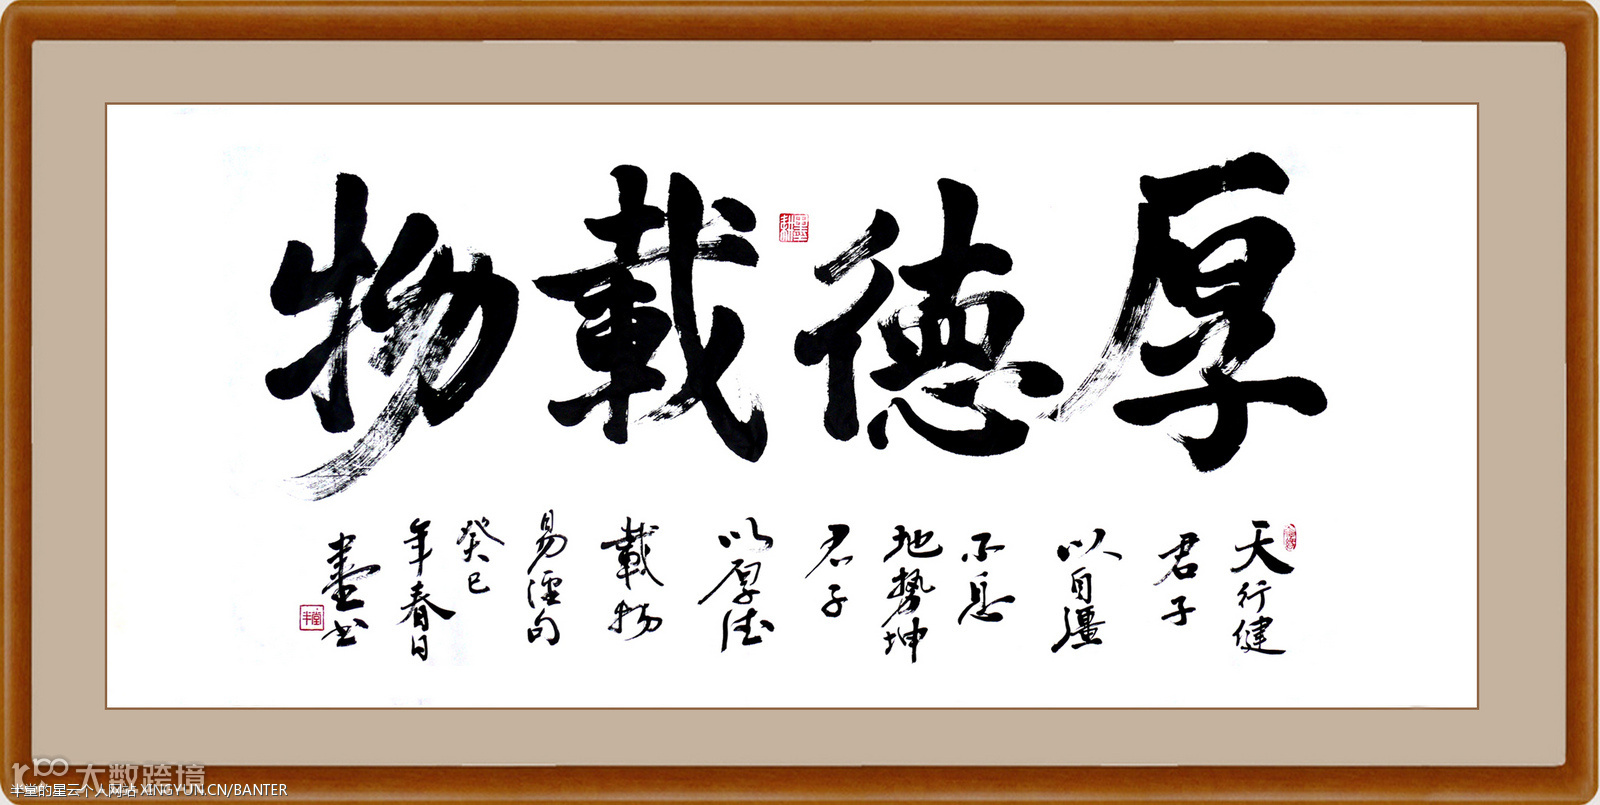 厚德載物
天行健
君子
以自彊
不息
地勢坤
君子
以厚德
載物
易經句
癸巳
年春日
書
半堂
大数跨境
半堂的星云个人网站 XINGYUN.CN/BANTER